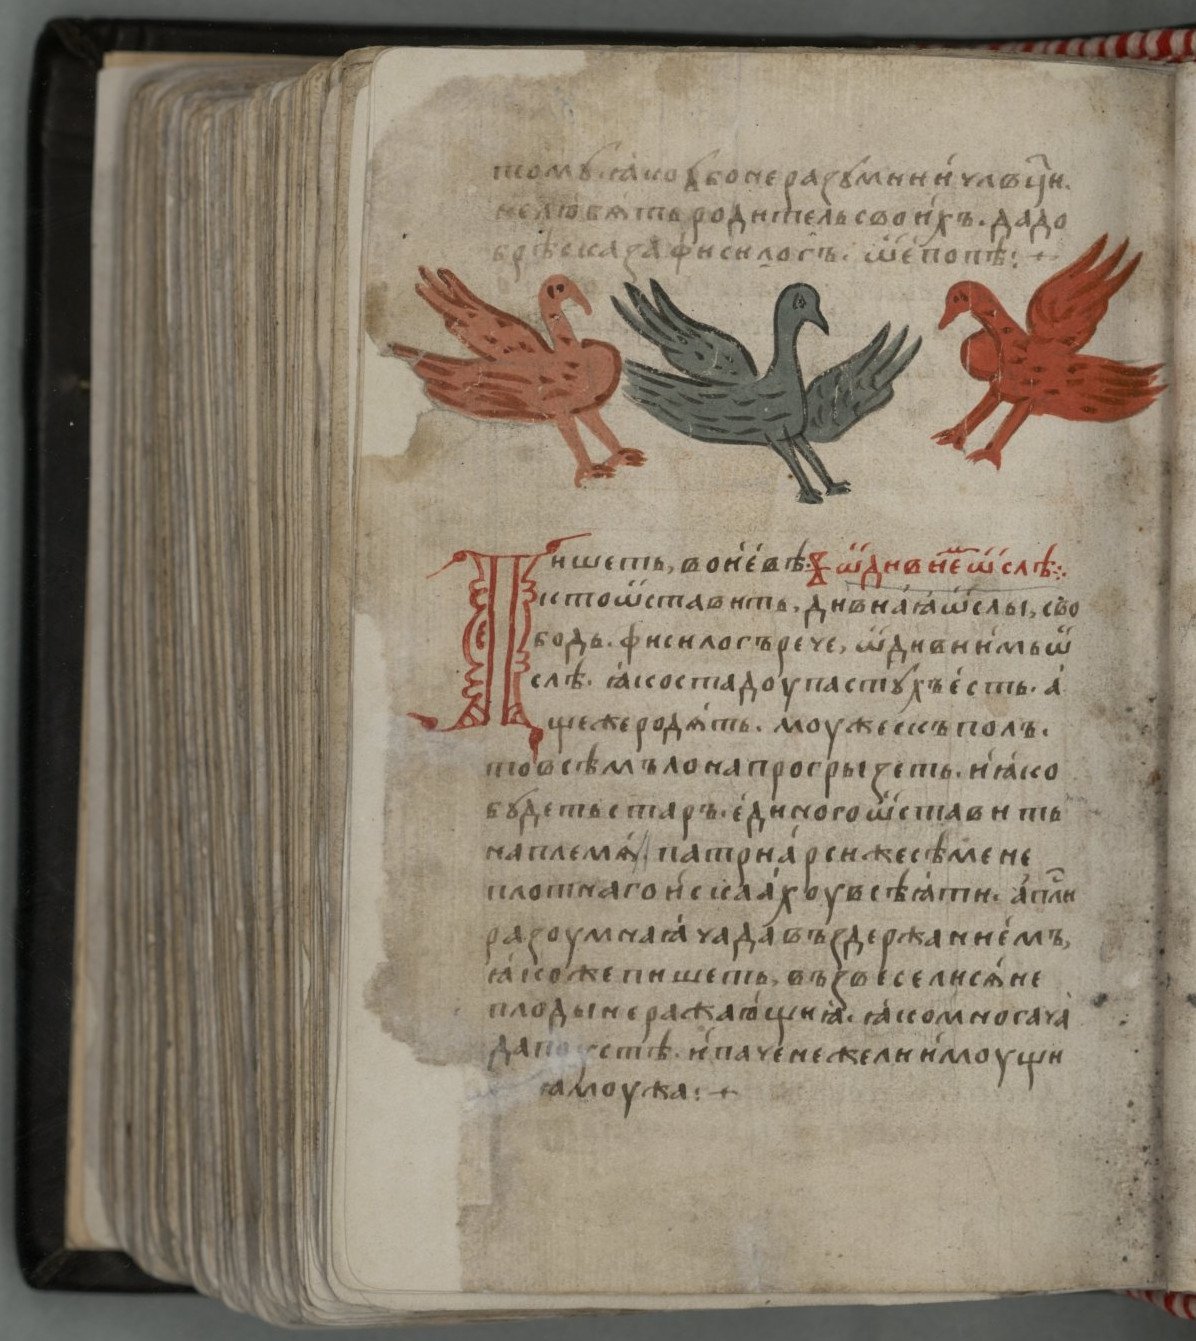 томꙋ. ꙗко ꙋбо неразꙋмнїи чл҃вци.
не любѧть родитель своихъ. да до
брѣ сказа фисилогъ. ѿ епопѣ:
Пишеть, во иевѣ: ѿ дивнем ѿслѣ:
исто ѿставить, дивнаꙗ ѿслы, сво
бодь. фисилогъ рече, ѿ дивнимь ѿ
слѣ. ꙗко стадоу пастꙋхъ есть. а
ще же родѧть. моужескъ полъ.
то всѣмъ лона прогрызеть. и ꙗко
бꙋдеть старъ. единого ѿставить
на племѧ. патриарси же сѣмене
плотнаго искаахоу всѣꙗти. ап҃ли
разоумнаꙗ чада въздержаниемъ,
ꙗкоже пишеть, възвеселисѧ не
плоды не ражающиꙗ. ꙗко многа ча
да поустѣ. и паче нежели имоущи
ꙗ моужа: